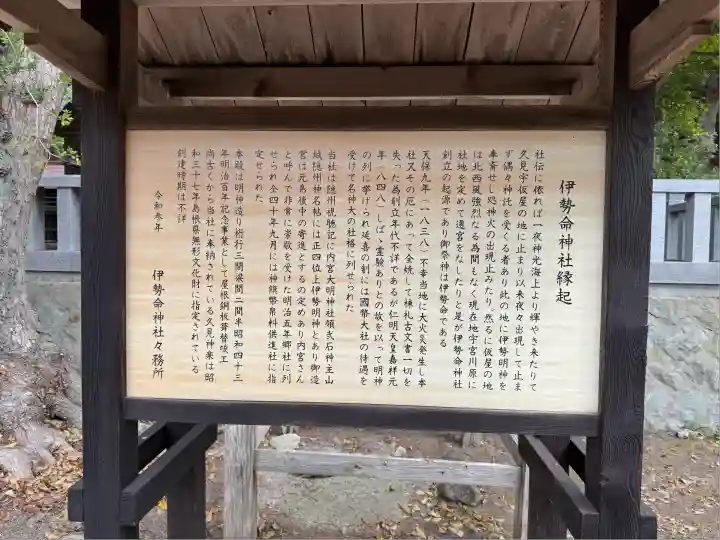 伊勢命神社縁起
社伝に依れば一夜神光海上より輝やき来たりて
久見字仮屋の地に止まり以来夜々出現して止ま
ず偶々神託を受くる者あり此の地に伊勢明神を
奉斎せし処神火の出現止みたり。然るに仮屋の地
は北西風強烈なる為間もなく現在地字宮川原に
社地を定めて遷宮をなしたりと是が伊勢命神社
創立の起源であり御祭神は伊勢命である
天保九年(一八三八)不幸当地に大火災発生し本
社又その厄にあって全焼して棟札古文書一切を
失った為創立年代不詳であるが仁明天皇嘉祥元
年(一八四八)しばゝ霊験ありとの故を以って明神
の列に挙げられ延喜の制には國幣大社の待遇を
受けて名神大の社格に列せられた
当社は隠州視聴記に内宮大明神社領弐石神主山
城隠州神名帖には正四位上伊勢明神とあり御造
営は元島後中の寄進とするの定めあり内宮さん
と呼んで非常に崇敬を受けた明治五年郷社に列
せられ仝四十年九月には神饌幣帛料供進社に指
定せられた
本殿は明神造り桁行三間梁間二間半昭和四十三
年明治百年記念事業として屋根銅板葺替竣工
尚古くから当社に奉納されている久見神楽は昭
和三十七年島根県無形文化財に指定されている
創建時期は不詳
令和参年
伊勢命神社々務所